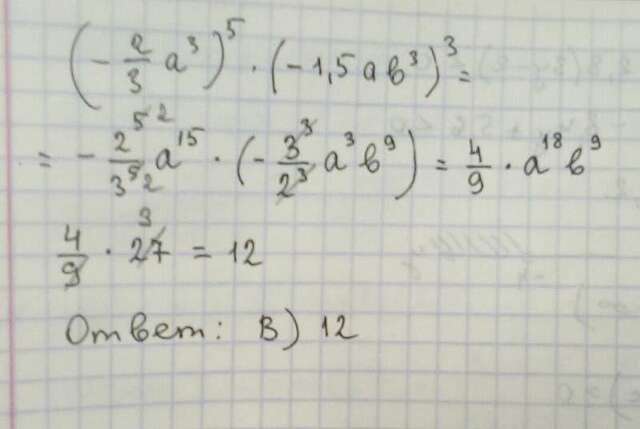 (-2/3 a³)⁵ · (-1,5ab³)³ =
= - 2⁵ ²/3⁵ ² a¹⁵ · (- 3³/2³ a³b⁹) = 4/9 · a¹⁸b⁹
4/9 · 27 3 = 12
Ответ: В) 12